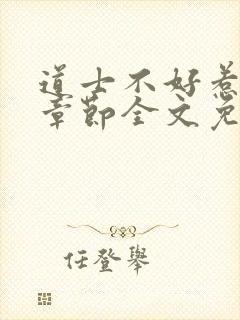 道士不好惹
章節全文免
任登舉